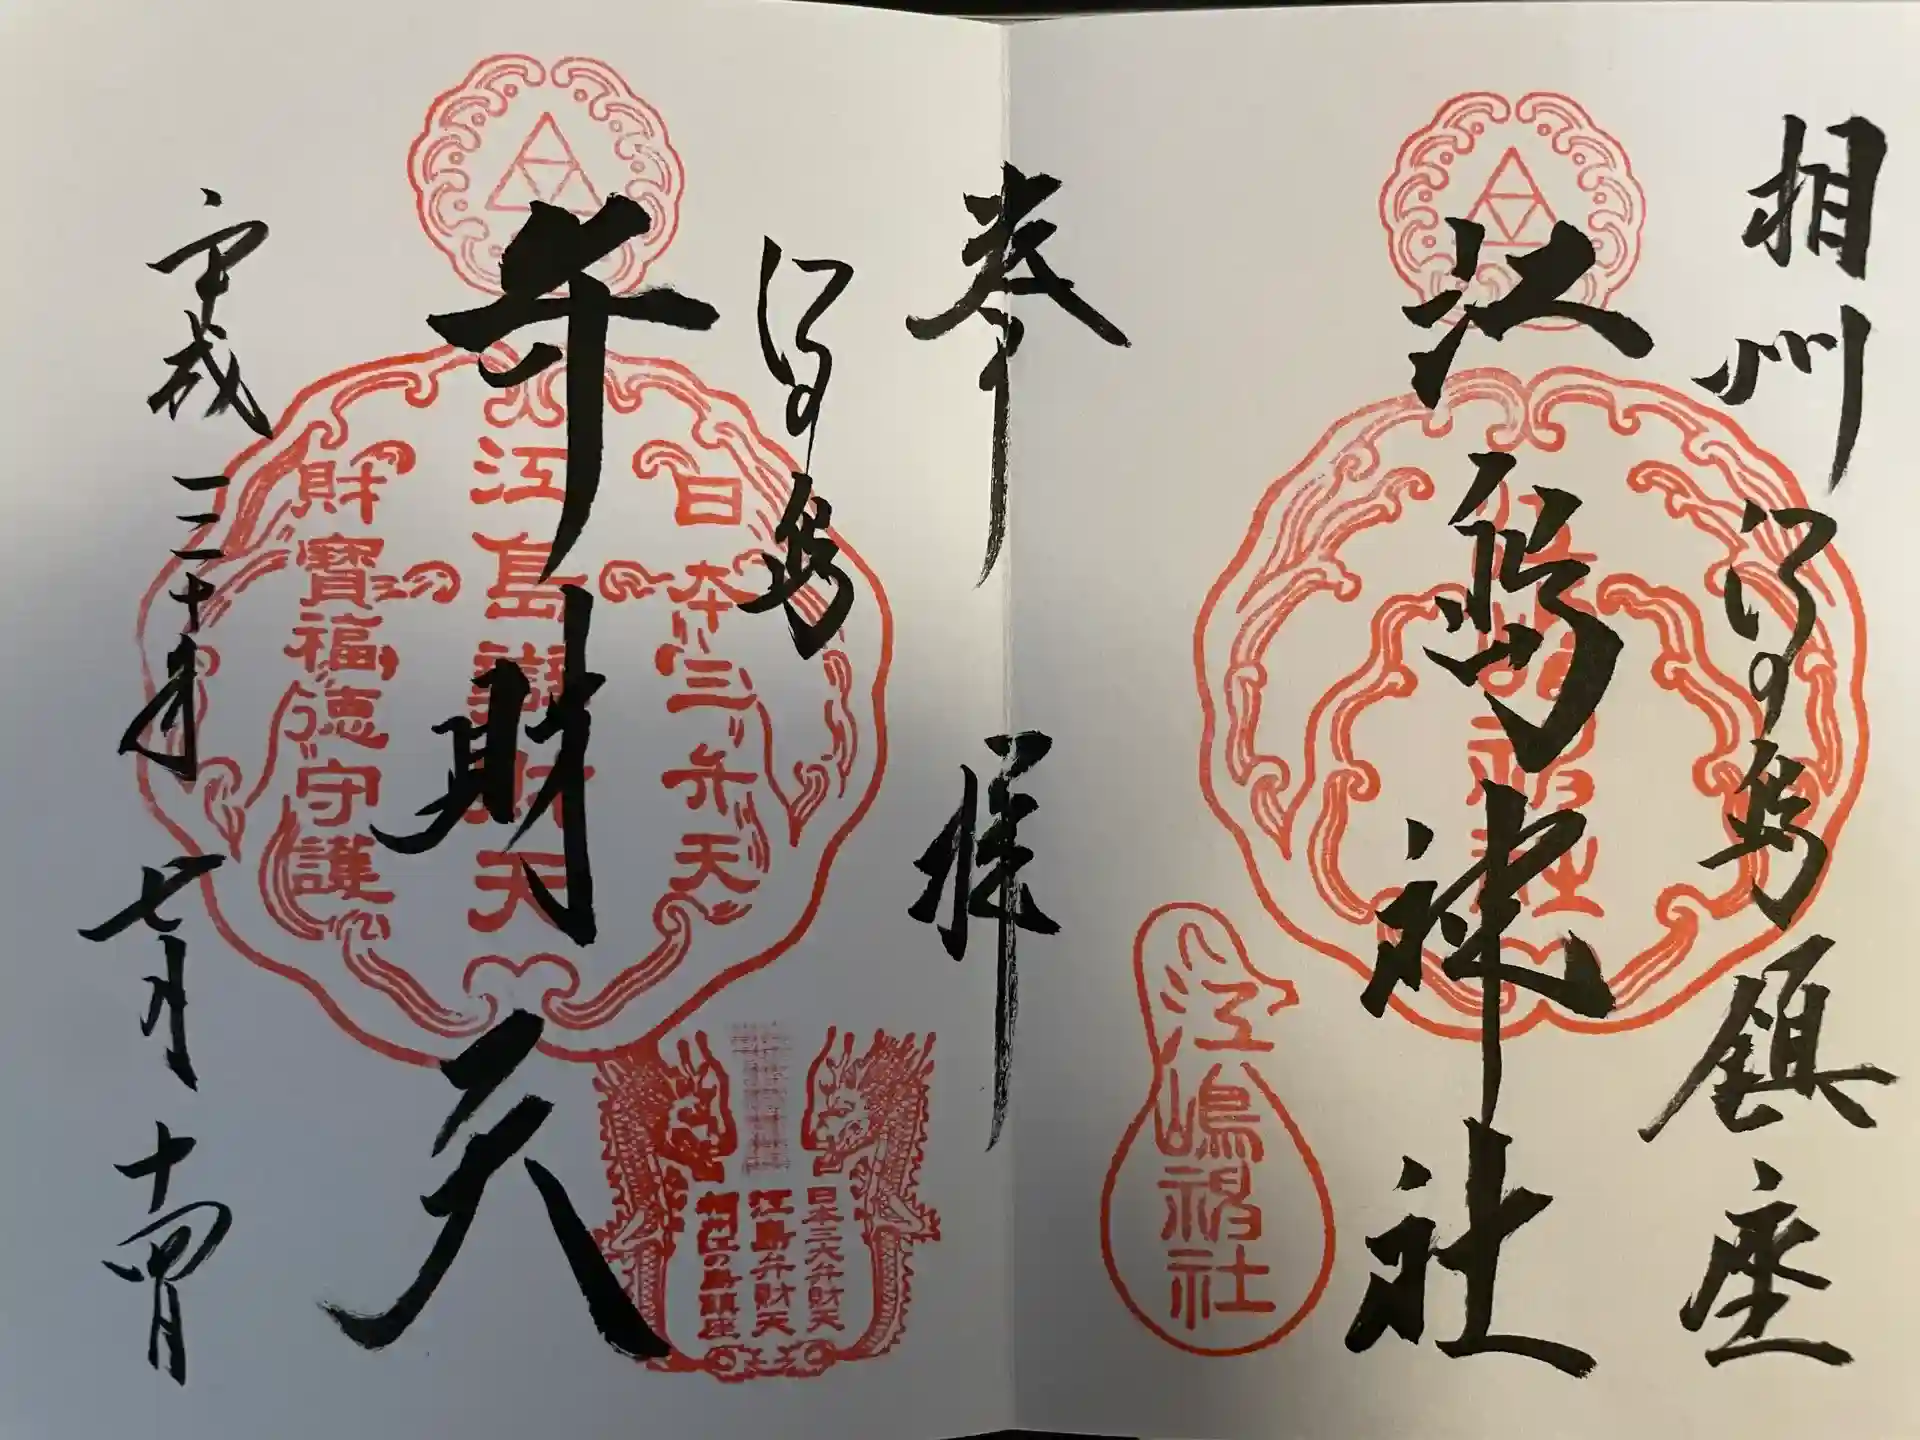 相州江の島鎮座
江島神社
江嶋神社
奉拝
江の島
弁財天
日本三弁天
江島辯財天
財寶福徳守護
日本三大弁財天
江島弁財天
相州江の島鎮座
平成三十年 七月 十四日